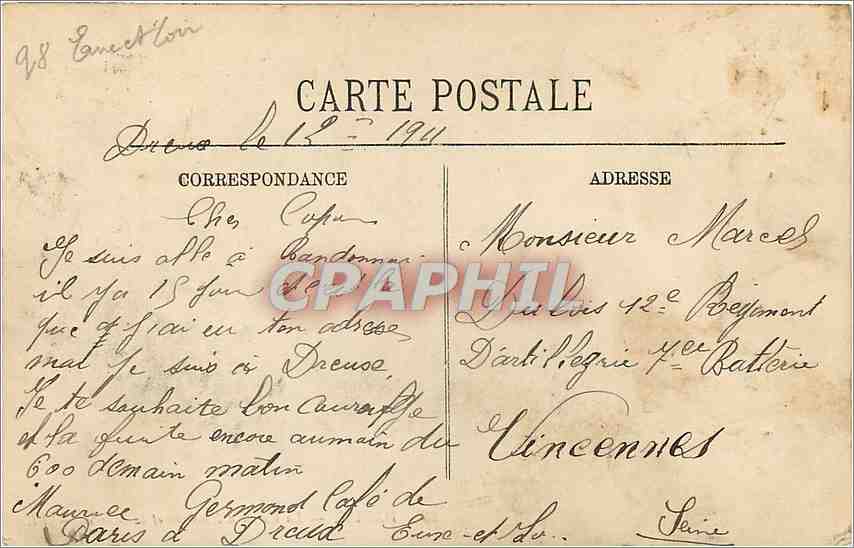 98 Eure et Loir
CARTE POSTALE
Dreux le 12 1911
CORRESPONDANCE
Cher Copain
Je suis allé à Randonnai
il y a 15 jour
que j'ai eu ton adresse
moi je suis à Dreuse
Je te souhaite bon Courage
et la fuite encore au moin du
600 demain matin
Maurice Germond Café de
Paris à Dreux Eure-et-Lo..
ADRESSE
Monsieur Marcel
Dubois 12e Régiment
D'artillegrie 7ce Battèrie
Vincennes
Seine
CPAPHIL